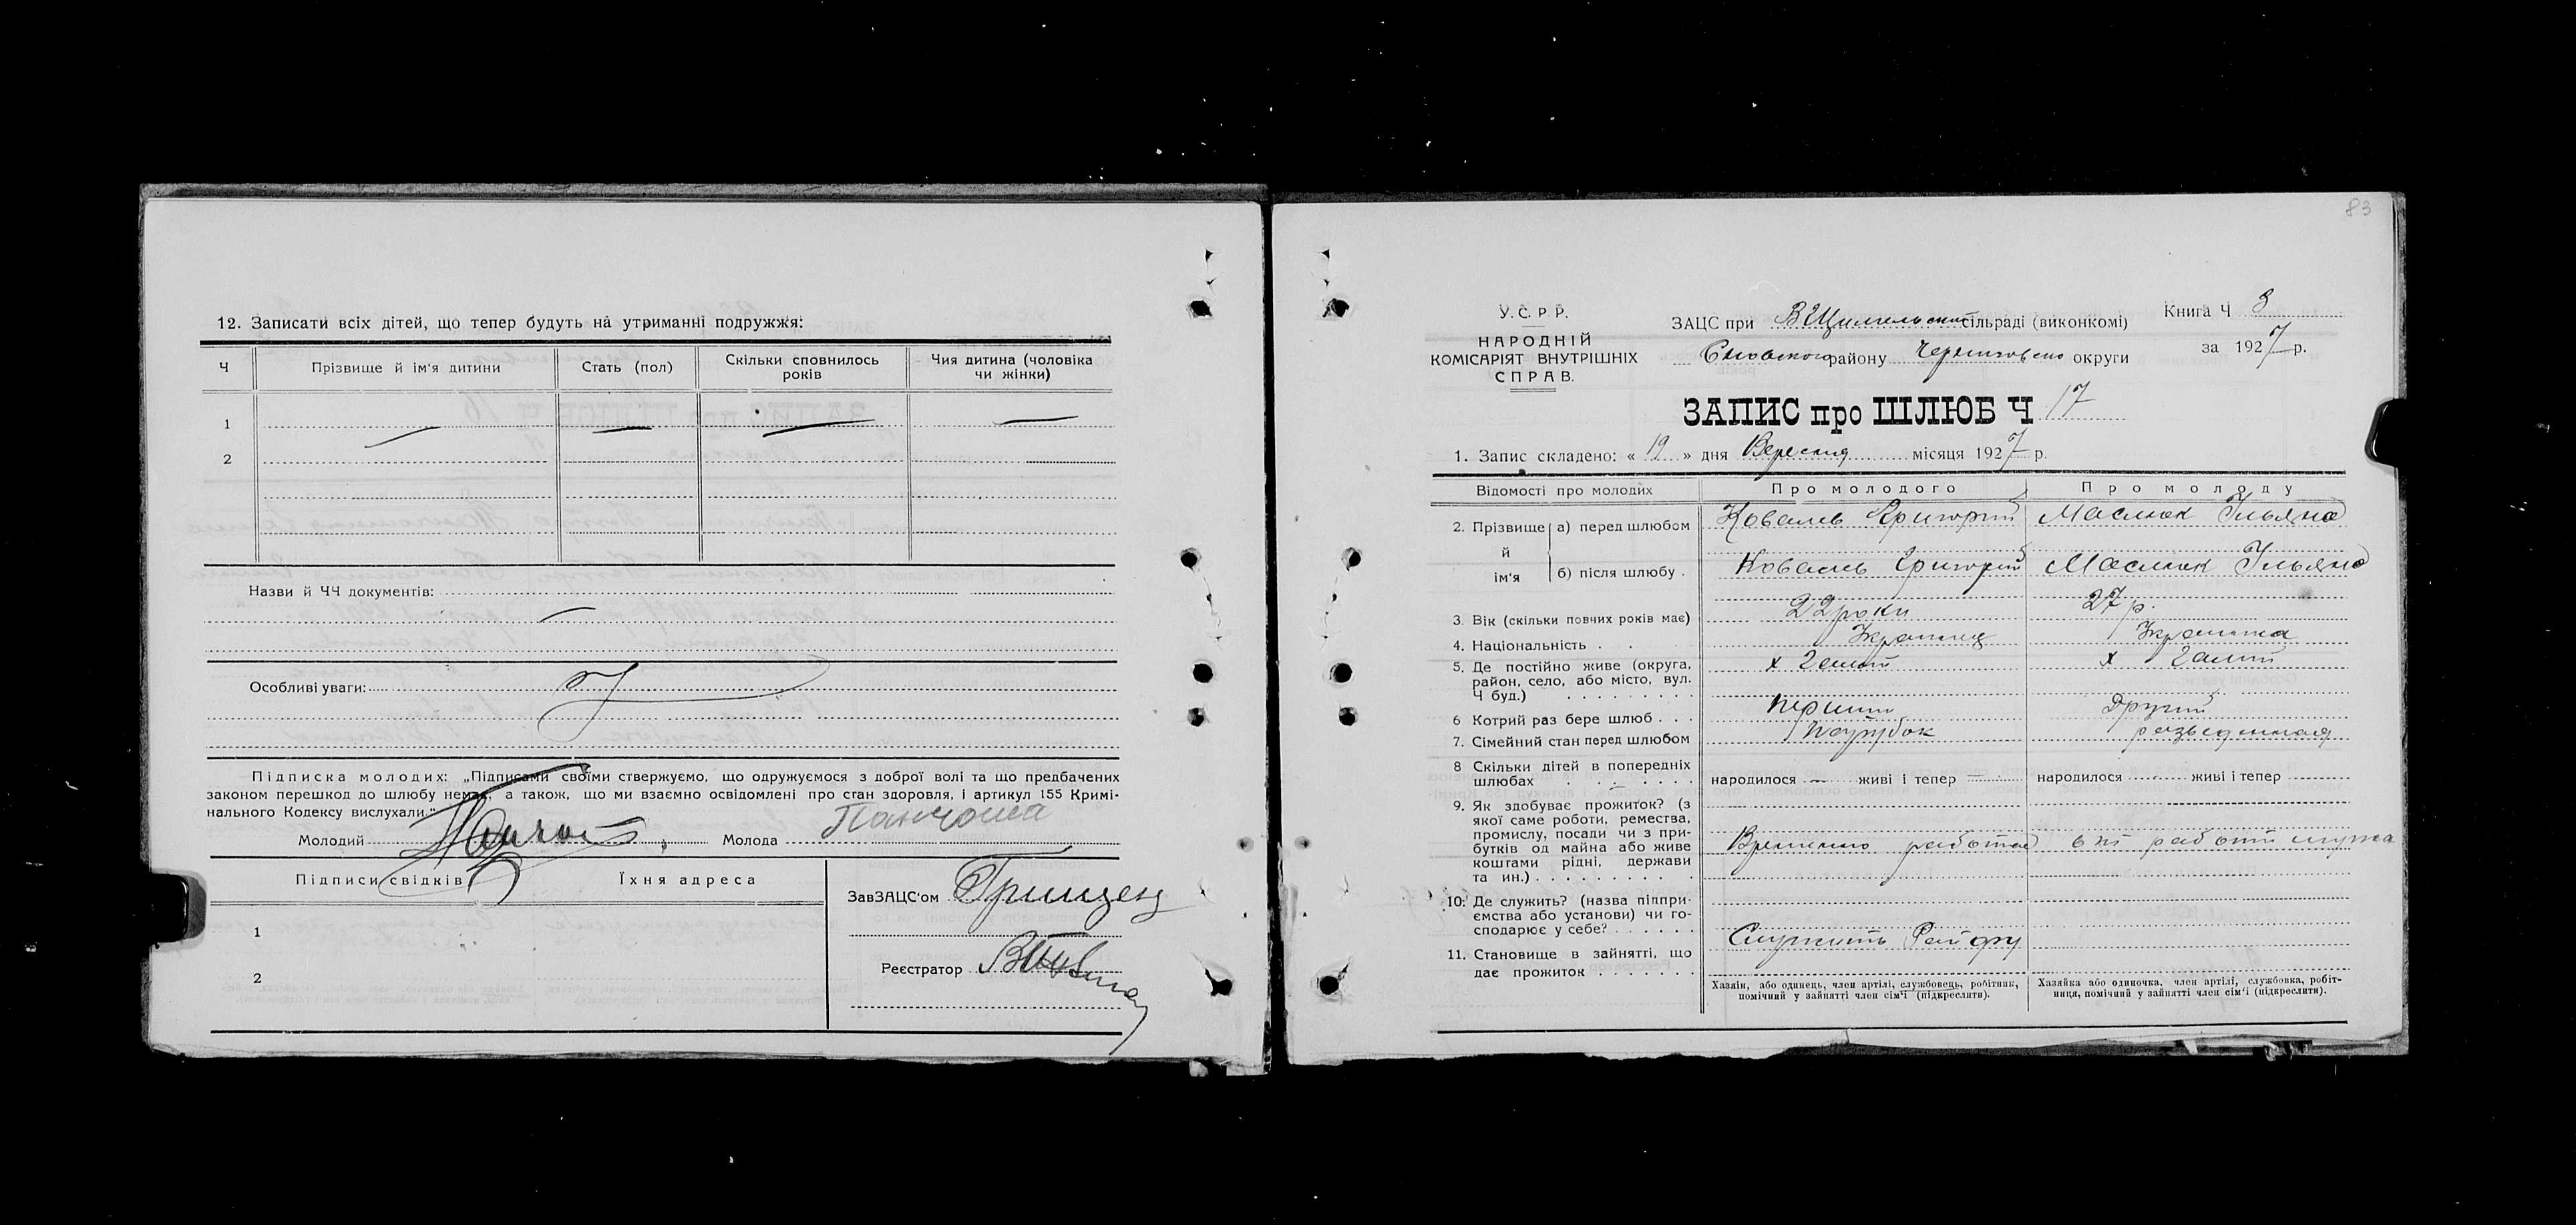 12. Записати всіх дітей, що тепер будуть на утриманні подружжя:
Ч Прізвище й ім'я дитини Стать (пол) Скільки сповнилось років Чия дитина (чоловіка чи жінки)
1 — — — —
2
Назви й ЧЧ документів: —
Особливі уваги:
Підписка молодих: „Підписами своїми ствержуємо, що одружуємося з доброї волі та що предбачених
законом перешкод до шлюбу немає, а також, що ми взаємно освідомлені про стан здоров'я, і артикул 155 Кримі-
нального Кодексу вислухали.“
Молодий Молода
Підписи свідків Їхня адреса
ЗавЗАЦС'ом
1
Реєстратор
2
83
У.С.Р.Р.
НАРОДНІЙ
КОМІСАРІЯТ ВНУТРІШНІХ
СПРАВ.
ЗАЦС при сільраді (виконкомі)
Сновського району Черниговско округи
Книга Ч 3
за 1927 р.
ЗАПИС про ШЛЮБ Ч 17
1. Запис складено: « 19 » дня Вересня місяця 1927 р.
Відомості про молодих Про молодого Про молоду
2. Прізвище й ім'я а) перед шлюбом Коваль Григорій Маслюк Ульяна
б) після шлюбу . Коваль Григорій Маслюк Ульяна
3. Вік (скільки повчих років має) 22 роки 27 р.
4. Національність . . Украинец Украинка
5. Де постійно живе (округа, район, село, або місто, вул. Ч буд.) х х
6 Котрий раз бере шлюб . . . перший Другий
7. Сімейний стан перед шлюбом Парубок разведенная
8 Скільки дітей в попередніх шлюбах народилося — живі і тепер — народилося живі і тепер
9. Як здобуває прожиток? (з якої саме роботи, ремества, промислу, посади чи з прибутків од майна або живе коштами рідні, держави та ин.)
10. Де служить? (назва піппри-ємства або установи) чи го-сподарює у себе?
11. Становище в зайнятті, що дає прожиток
Хазяїн, або одинець, член артілі, службовець, робітник, помічний у зайнятті член сім'ї (підкреслити).
Хазяйка або одиночка, член артілі, службовка, робіт-ниця, помічний у зайнятті член сім'ї (підкреслити).